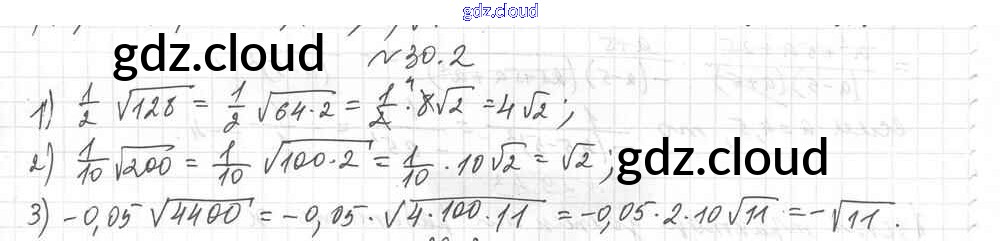 gdz.cloud
gdz.cloud
№30.2
1) 1/2 √128 = 1/2 √64·2 = 1/2 · 8√2 = 4√2;
2) 1/10 √200 = 1/10 √100·2 = 1/10 · 10√2 = √2;
gdz.cloud
3) -0,05 √4400 = -0,05 · √4·100·11 = -0,05·2·10√11 = -√11.